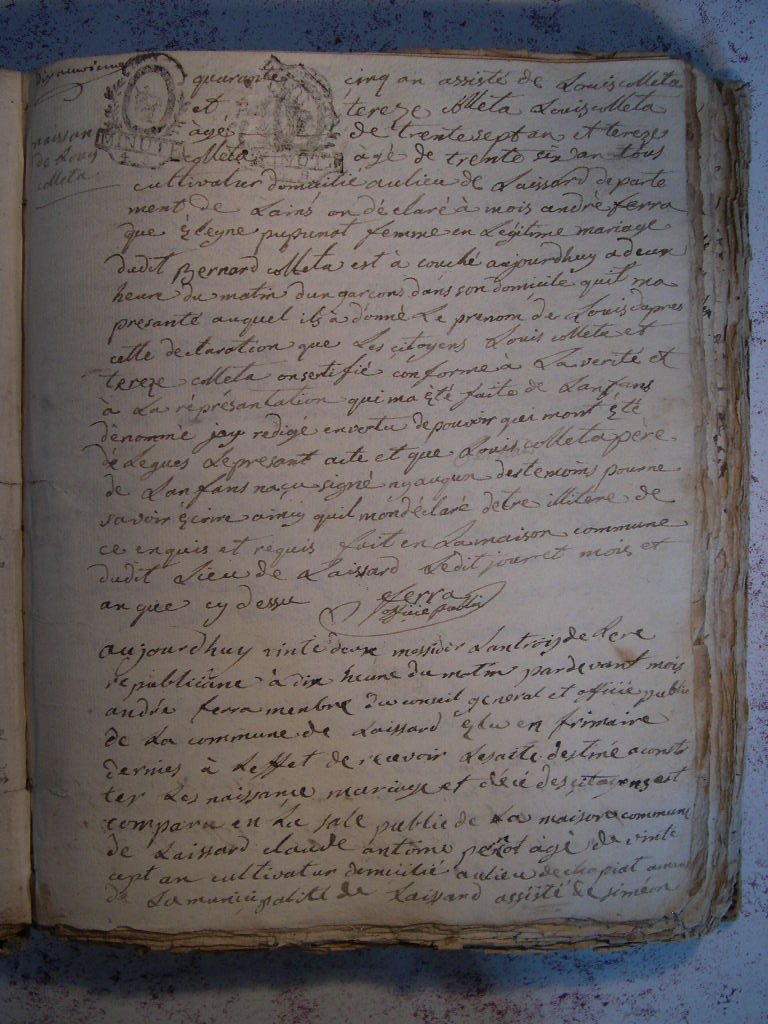 dixneuvieme
naissan
de Louis
colleta
MINUTE
MINUTE
quarante cinq an assisté de Louis colleta
et tereze colleta Louis colleta
âgés de trente sept an et tereze
colleta âgé de trente six an tous
cultivatur domailié au lieu de Laissard departe
ment de Lains on déclaré à mois andré ferra
que femme en Légitime mariage
dudit Bernard colleta est à couché aujourdhuy a deux
heure du matin dun garçons dans son domicile quil ma
presanté auquel ils à donné Le prenom de Louis dapres
cette declaration que Les çitoyens Louis colleta et
tereze colleta onsertifié conforme à La verité et
à La réprésantation qui ma été faite de Lanfans
dénommé jay redigé envertu de pouvoir qui mont été
délegues Lepresant acte et que Louis colleta père
de Lanfans naçu signé ny auqun destemoins pour ne
savoir écrire ainçy quil mondéclaré detre illitere de
ce enquis et requis fait en La maison commune
dudit Lieu de Laissard Ledit jour et mois et
an que cy dessu ferra
officié public
aujourdhuy vinte deux messidor Lantrois de Lere
republiciane à dix heure du matin pardevant mois
andré ferra menbre du conseil general et officié public
de La commune de Laissard élu en frimaire
dernies à Leffet de recevoir Lesacte destiné aconsta
ter Les naissance mariage et décé des çitoyens est
comparu en La sale public de La maison commune
de Laissard claude antoine âgé de vinte
cept an cultivatur domicilié au lieu de chapiat
de La municipalité de Laissard assisté de simeon